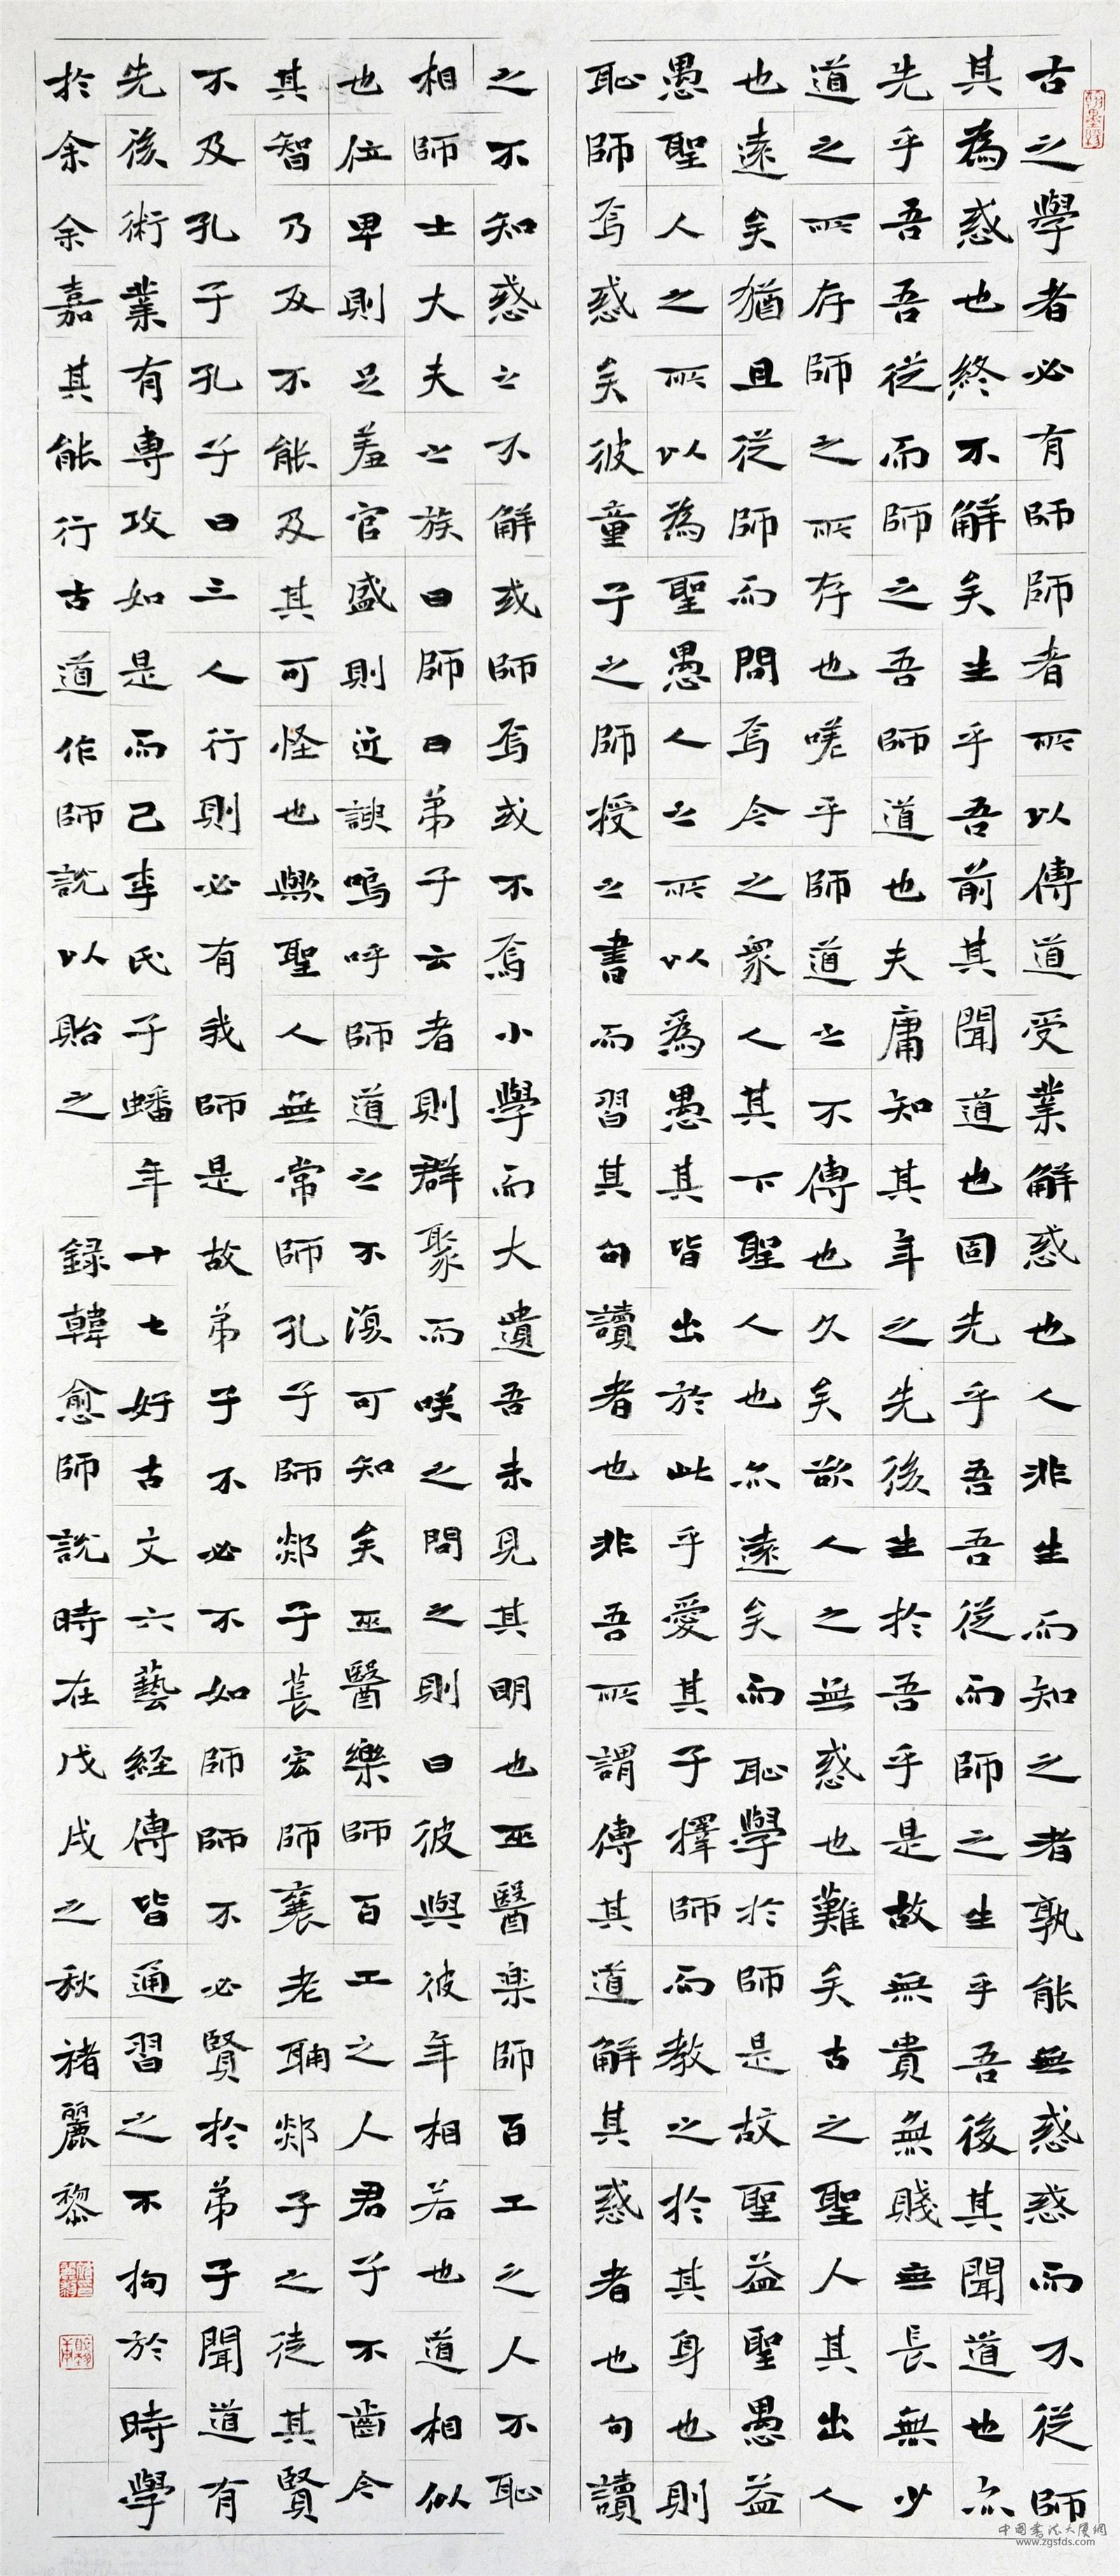 古之學者必有師師者所以傳道受業解惑也人非生而知之者孰能無惑惑而不從師
其為惑也終不解矣生乎吾前其聞道也固先乎吾吾從而師之生乎吾後其聞道也亦
先乎吾吾從而師之吾師道也夫庸知其年之先後生於吾乎是故無貴無賤無長無少
道之所存師之所存也嗟乎師道之不傳也久矣欲人之無惑也難矣古之聖人其出人
也遠矣猶且從師而問焉今之衆人其下聖人也亦遠矣而恥學於師是故聖益聖愚益
愚聖人之所以為聖愚人之所以為愚其皆出於此乎愛其子擇師而教之於其身也則
恥師焉惑矣彼童子之師授之書而習其句讀者也非吾所謂傳其道解其惑者也句讀
之不知惑之不解或師焉或不焉小學而大遺吾未見其明也巫醫楽師百工之人不恥
相師士大夫之族曰師曰弟子云者則群聚而咲之問之則曰彼與彼年相若也道相似
也位卑則足羞官盛則近諛嗚呼師道之不復可知矣巫醫樂師百工之人君子不齒今
其智乃反不能及其可怪也歟聖人無常師孔子師郯子萇宏師襄老聃郯子之徒其賢
不及孔子孔子曰三人行則必有我師是故弟子不必不如師師不必賢於弟子聞道有
先後術業有專攻如是而已李氏子蟠年十七好古文六藝経傳皆通習之不拘於時學
於余余嘉其能行古道作師說以貽之 録韓愈師說時在戊戌之秋褚麗黎
中国書法大廈網
www.zgsfds.com